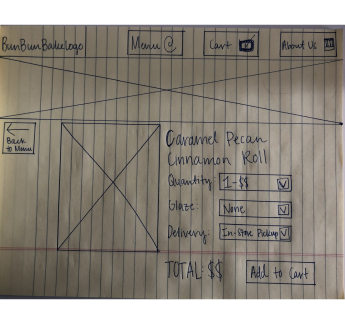 BunBunBakeLogo
Menu
Cart
About Us
Back
to Menu
Caramel Pecan
Cinnamon Roll
Quantity: 1-$$
Glaze: None
Delivery: In-Store Pickup
TOTAL: $$ Add to Cart